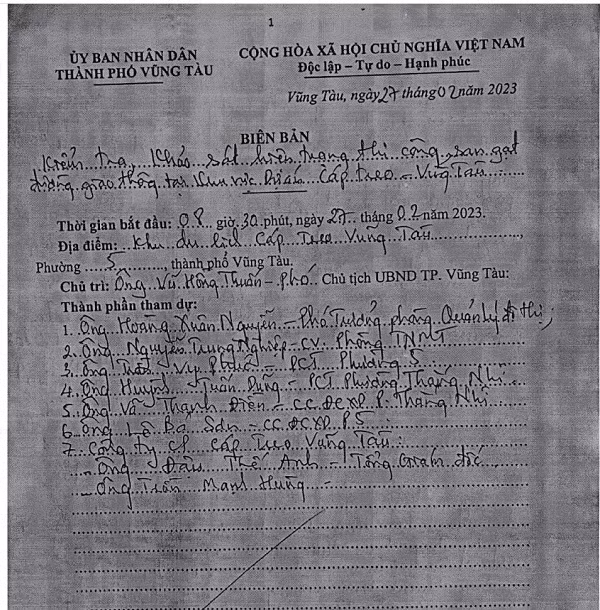 1
ỦY BAN NHÂN DÂN
THÀNH PHỐ VŨNG TÀU
CỘNG HÒA XÃ HỘI CHỦ NGHĨA VIỆT NAM
Độc lập – Tự do – Hạnh phúc
Vũng Tàu, ngày 27 tháng 02 năm 2023
BIÊN BẢN
Kiểm tra, khảo sát hiện trạng thi công, san gạt
đường giao thông tại khu vực Dự án Cáp treo – Vũng Tàu
Thời gian bắt đầu: 08 giờ 30 phút, ngày 27 tháng 02 năm 2023.
Địa điểm: Khu du lịch Cáp Treo Vũng Tàu,
Phường 5, thành phố Vũng Tàu.
Chủ trì: Ông Vũ Hồng Thuấn – Phó Chủ tịch UBND TP. Vũng Tàu:
Thành phần tham dự:
1. Ông Hoàng Xuân Nguyễn – Phó Trưởng phòng Quản lý đô thị;
2. Ông Nguyễn Trung Nghiệp – CV. Phòng TNMT
3. Ông Trần – PCT Phường 5
4. Ông Huỳnh Tuấn Dũng – PCT Phường Thắng Nhì
5. Ông Võ Thanh Điền – CC.ĐCXD P. Thắng Nhì
6. Ông Lê Bá Sơn – CC.ĐCXD P.5
7. Công ty CP Cáp Treo Vũng Tàu:
– Ông Đậu Thế Anh – Tổng Giám đốc
– Ông Trần Mạnh Hùng –